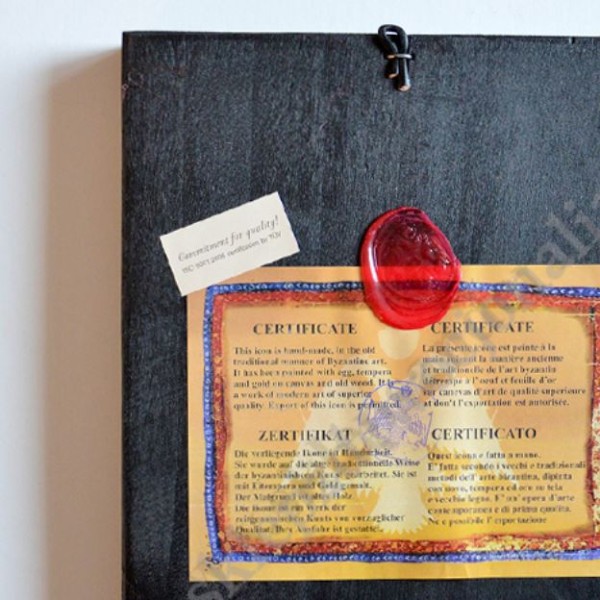 Commitment for quality!
ISO 9001:2008 certification by TÜV
CERTIFICATE
This icon is hand-made, in the old
traditional manner of Byzantine art.
It has been painted with egg, tempera
and gold on canvas and old wood. It is
a work of modern art of superior
quality. Export of this icon is permitted.
CERTIFICATE
La présente icône est peinte à la
main suivant la manière ancienne
et traditionelle de l'art byzantin
détrempe à l'oeuf et feuille d'or
sur canevas d'art de qualité superieure
et dont l'exportation est autorisée.
ZERTIFIKAT
Die vorliegende Ikone ist Handarbeit.
Sie wurde auf die alte traditionelle Weise
der byzantinischen Kunst gearbeitet. Sie ist
mit Eitempera und Gold gemalt.
Der Malgrund ist altes Holz.
Die Ikone ist ein Werk der
zeitgenössischen Kunts von vorzüglicher
Qualität. Ihre Ausfuhr ist gestattet.
CERTIFICATO
Quest icona e fatta a mano.
E' fatta secondo i vecchi e tradizionali
metodi dell' arte bizantina, dipinta
con uovo, tempera ed oro su tela
e vecchio legno. E' un' opera d'arte
contemporanea e di prima qualita.
Ne e possibile l' esportazione